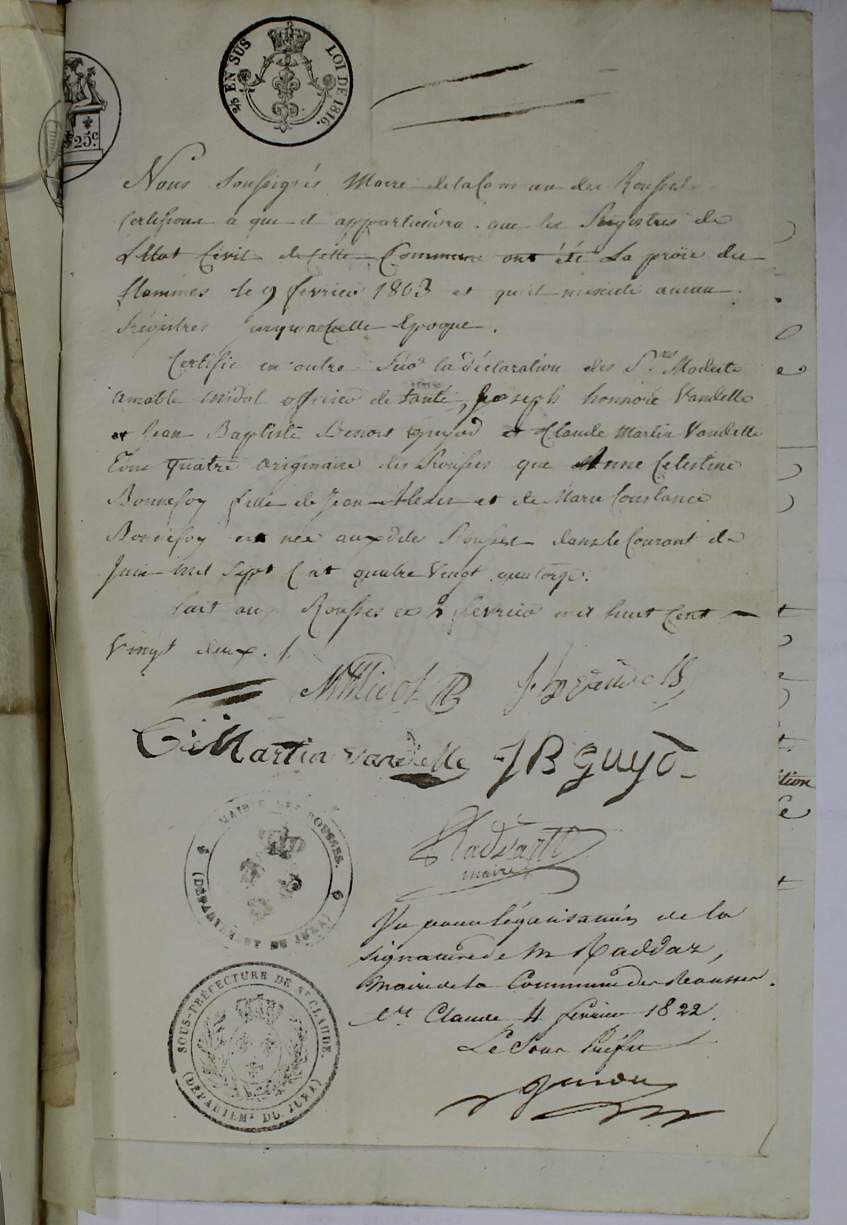 25 EN SUS LOI DE 1816.
25c.
Nous Soussignés Maire de la Commun des Rousses
Certifions a que il appartiendra que les Registres de
L'Etat Civil de Cette Commune ont été La proïe des
flammes le 9 fevrier 1803 et qu'il aucun
Régistres jusqu'a Celle Epoque.
Certifie en outre Sur la déclaration des Srs Modeste
amable midol officier de Santé, Joseph honnoré Vandelle
et Jean Baptiste Benoit guyod et Claude Martin Vandelle
Tous quatre originaire des Rousses que Anne Celestine
Bonnefoy fille de Jean Alexis et de Marie Constance
Bonnefoy est née aux dites Rousses dans le Courant de
Juin mil Sept Cent quatre Vingt quatorze.
fait aux Rousses ce fevrier mil huit Cent
Vingt deux.
MMidol
Cl Martin vandelle JB Guyod
MAIRIE DES ROUSSES.
(DEPARTEMENT DU JURA)
maire
Vu pour légalisation de la
signature de M Raddaz,
Maire de la Commune des Rousses.
St Claude 4 fevrier 1822.
Le Sous Préfet
SOUS-PRÉFECTURE DE ST CLAUDE.
(DÉPARTEMt DU JURA)